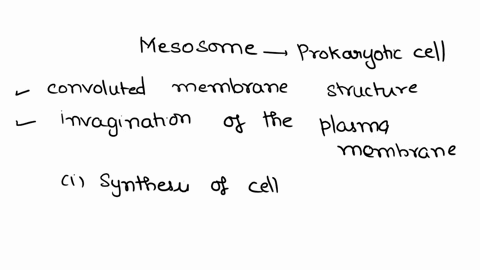 Mesosome → Prokaryotic cell
✓ convoluted membrane structure
✓ invagination of the plasma
membrane
(i) Synthesis of cell